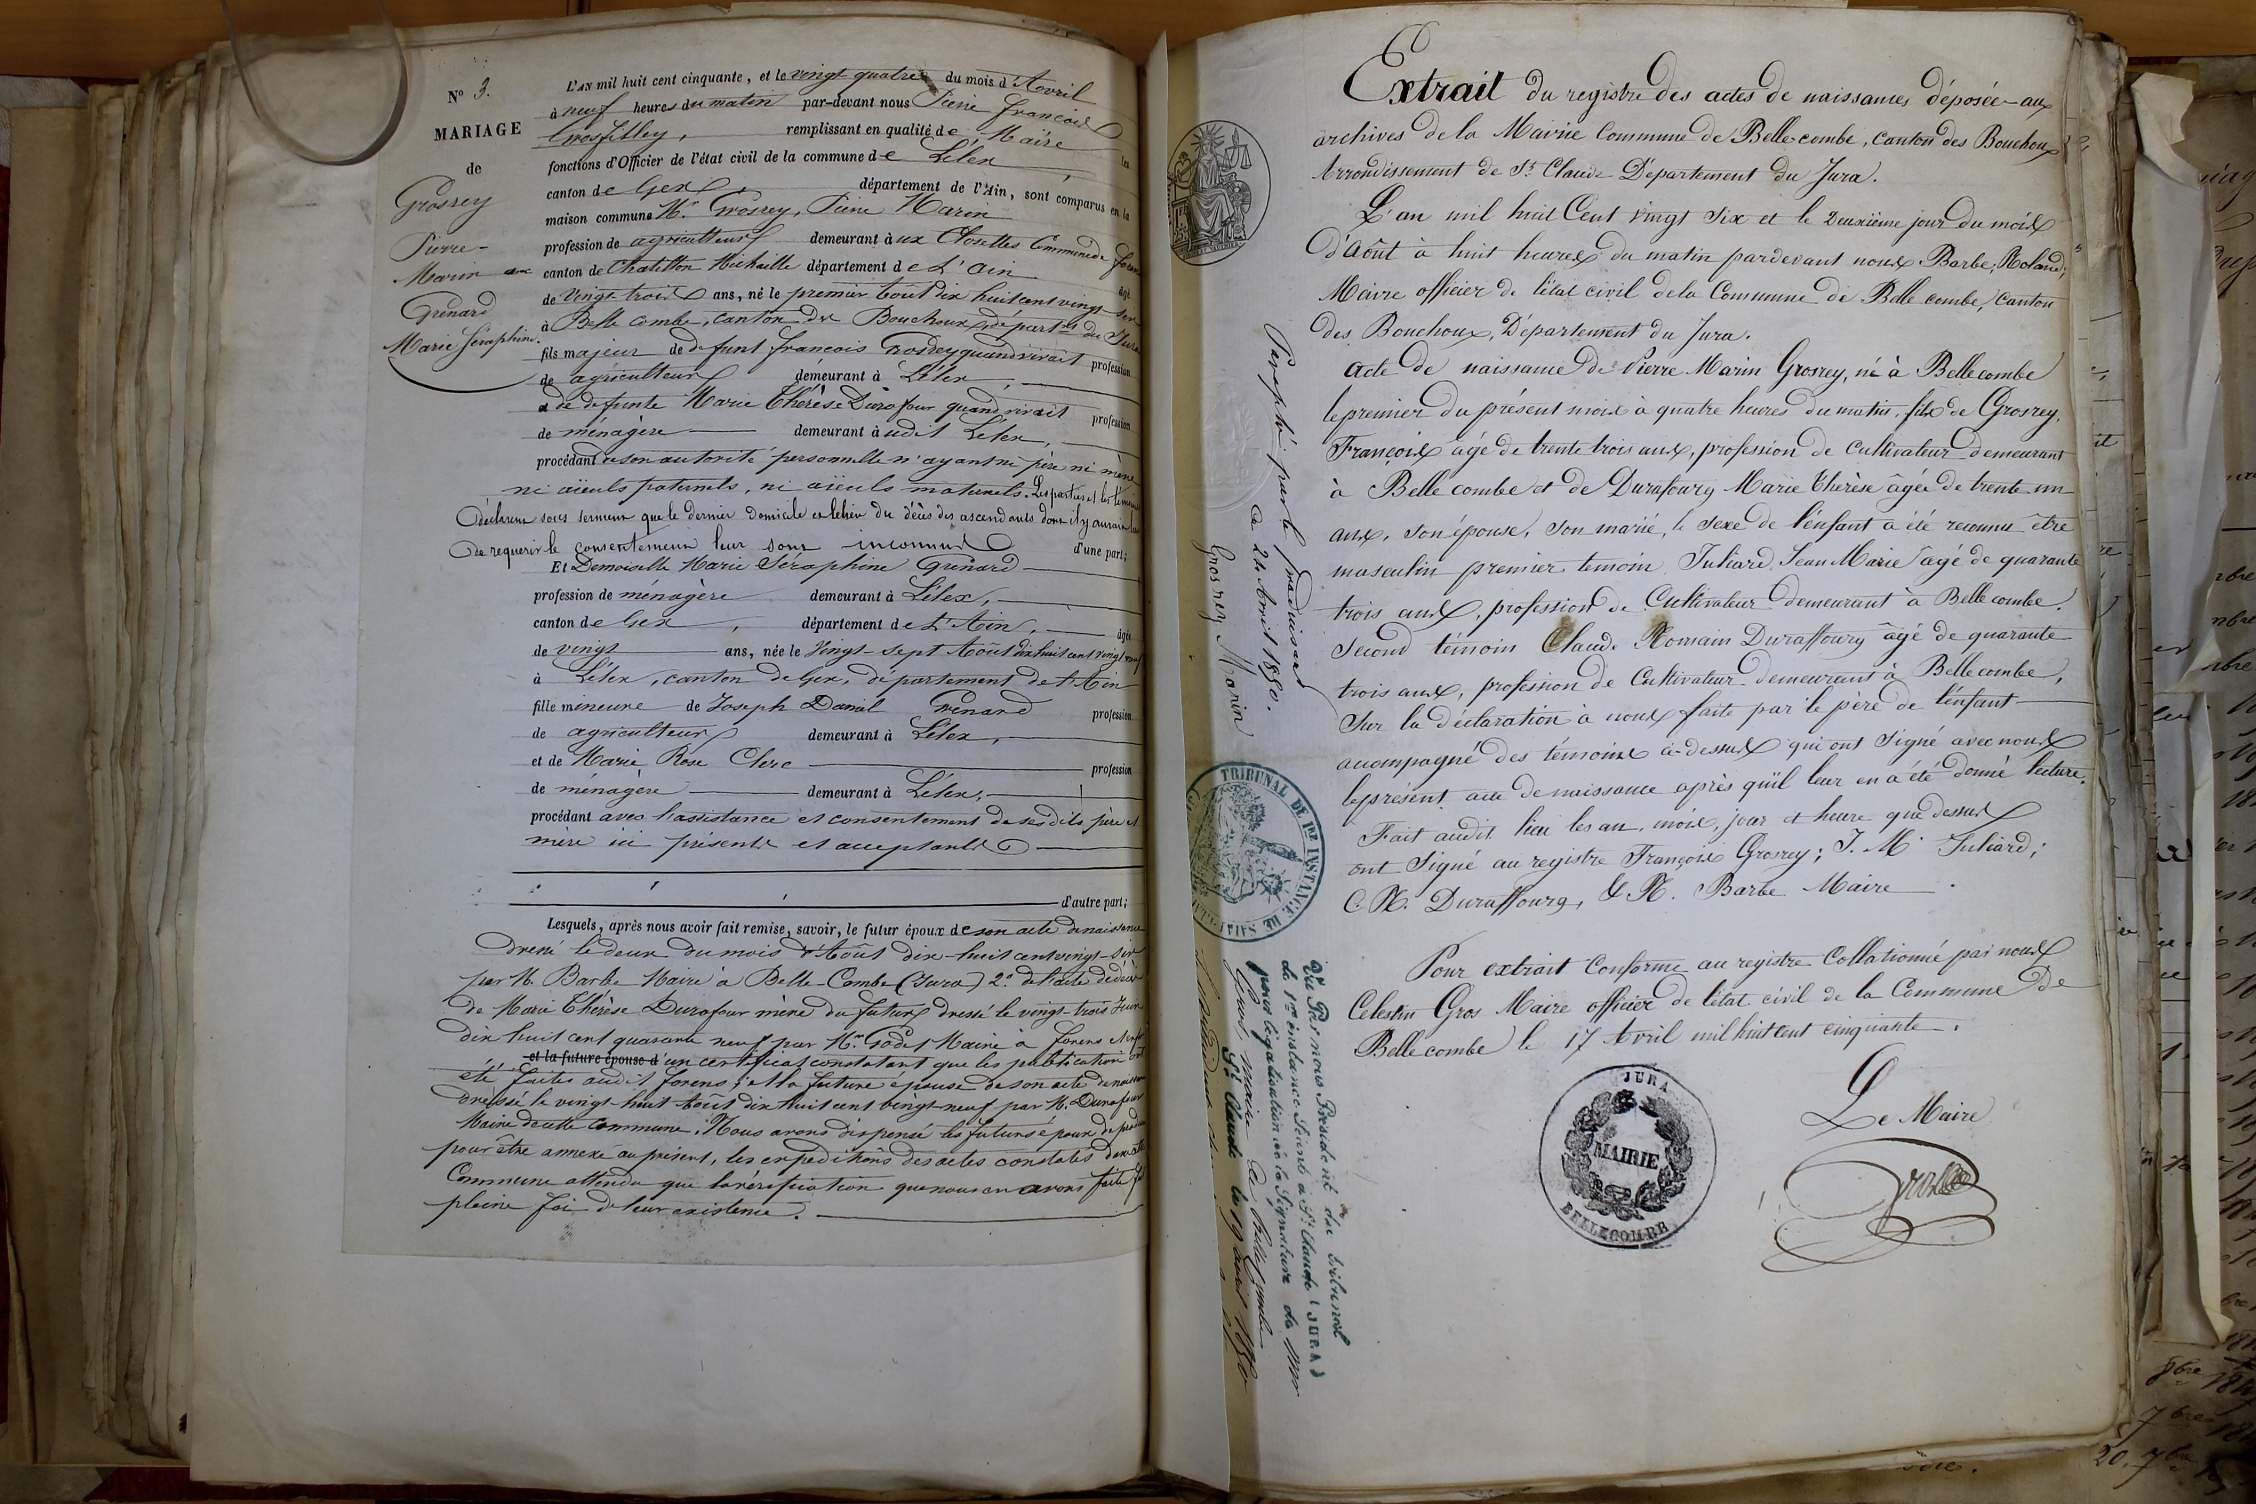 N° 3.
MARIAGE
de
Grosrey
Pierre-
Marin
Grenard
Marie Séraphine.
L'AN mil huit cent cinquante, et le vingt quatre du mois d'Avril
à neuf heures du matin par-devant nous Pierre François
Grosfilley, remplissant en qualité de Maire les
fonctions d'Officier de l'état civil de la commune de Lélex
canton de Gex, département de l'Ain, sont comparus en la
maison commune Mr Grosrey, Pierre Marin
profession de agriculteur demeurant aux Closettes Commune de forens
canton de Chatillon Michaille département de L'ain âgé
de Vingt-trois ans, né le premier Août dix huit cent vingt-six
à Belle combe, canton des Bouchoux, départ du Jura
fils majeur de defunt francois Grosrey quand vivait profession
de agriculteur demeurant à Lélex,
et de defunte Marie Thérèse Durafour quand vivait profession
de ménagère demeurant audit Lélex,
procédant de son autorité personnelle n'ayant ni père ni mère
ni aïeuls paternels, ni aïeuls maternels. Les parties et les témoins
déclarent sous serment que le dernier domicile et le lieu du décès des ascendants dont il y aurait lieu
de requerir le consentement leur sont inconnus d'une part;
Et Demoiselle Marie Séraphine Grenard
profession de ménagère demeurant à Lélex,
canton de Gex, département de L'Ain, âgée
de vingt ans, née le Vingt-sept Août dix huit cent vingt neuf
à Lélex, canton de Gex, département de l'Ain
fille mineure de Joseph Daniel Grenard profession
de agriculteur demeurant à Lélex,
et de Marie Rose Clerc profession
de ménagère demeurant à Lélex,
procédant avec l'assistance et consentement de ses dits père et
mère ici présents et acceptants
d'autre part;
Lesquels, après nous avoir fait remise, savoir, le futur époux de son acte de naissance
dressé le deux du mois d'Août dix-huit cent vingt-six
par M. Barbe Maire à Belle-Combe (Jura) 2° de l'acte de décès
de Marie Thérèse Durafour mère du futur dressé le vingt-trois Juin
dix huit cent quarante neuf par Mr Godet Maire à forens
et la future épouse d'un certificat constatant que les publications ont
été faites audit forens; et la future épouse de son acte de naissance
dressé le vingt-huit Août dix huit cent vingt-neuf par M. Durafour
Maire de cette commune. Nous avons dispensé les futurs époux de produire
pour être annexé au présent, les expeditions des actes constatés dans cette
Commune attendu que la vérification que nous en avons faite fait
pleine foi de leur existence.
Extrait du registre des actes de naissances déposée aux
archives de la Mairie Commune de Bellecombe, canton des Bouchoux
Arrondissement de St Claude Département du Jura.
L'an mil huit Cent vingt six et le deuxième jour du mois
d'Août à huit heures du matin pardevant nous Barbe, Roland,
Maire officier de l'état civil de la Commune de Bellecombe, canton
des Bouchoux, Département du Jura.
acte de naissance de Pierre Marin Grosrey, né à Bellecombe
le premier du présent mois à quatre heures du matin, fils de Grosrey,
François âgé de trente trois ans, profession de cultivateur demeurant
à Belle combe et de Durafourg Marie Thérèse âgée de trente un
ans, son épouse, son marié, le sexe de l'enfant a été reconnu être
masculin premier temoin Juliard Jean Marie âgé de quarante
trois ans, profession de Cultivateur demeurant à Bellecombe.
Second témoin Claude Romain Duraffourg âgé de quarante
trois ans, profession de Cultivateur demeurant à Bellecombe,
Sur la déclaration à nous faite par le père de l'enfant
accompagné des témoins ci-dessus qui ont signé avec nous
le présent acte de naissance après qu'il leur en a été donné lecture.
Fait audit lieu les an, mois, jour et heure que dessus
ont signé au registre François Grosrey; J. M. Juliard;
C. R. Duraffourg, & R. Barbe Maire.
Pour extrait Conforme au registre Collationné par nous
Celestin Gros Maire officier de l'état civil de la Commune de
Bellecombe le 17 Avril mil huit cent cinquante.
Le Maire
JURA
MAIRIE
BELLECOMBE
Paraphé par le produisant
ce 24 Avril 1850.
Grosrey Marin
TRIBUNAL DE 1re INSTANCE DE SAINT-CLAUDE
Vu Par nous Président du tribunal
de 1re instance Séant à St Claude (JURA)
pour légalisation de la Signature de Mr
Gros, maire de Bellecombe
St Claude le 19 avril 1850